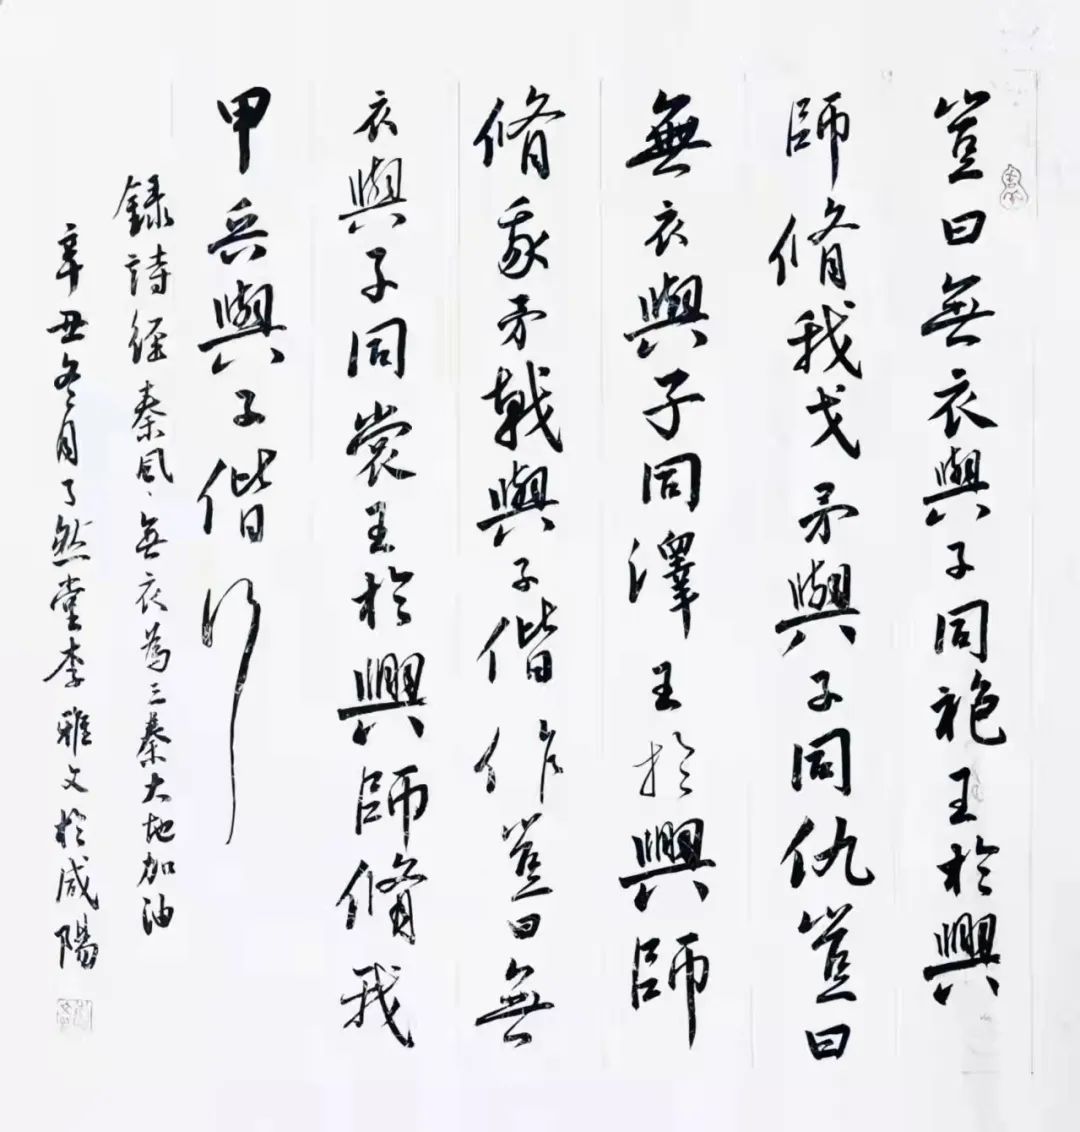 豈曰無衣與子同袍王於興
師脩我戈矛與子同仇豈曰
無衣與子同澤王於興師
脩我矛戟與子偕作豈曰無
衣與子同裳王於興師脩我
甲兵與子偕行
録詩經秦風、無衣為三秦大地加油
辛丑冬月了然堂李雅文於咸陽